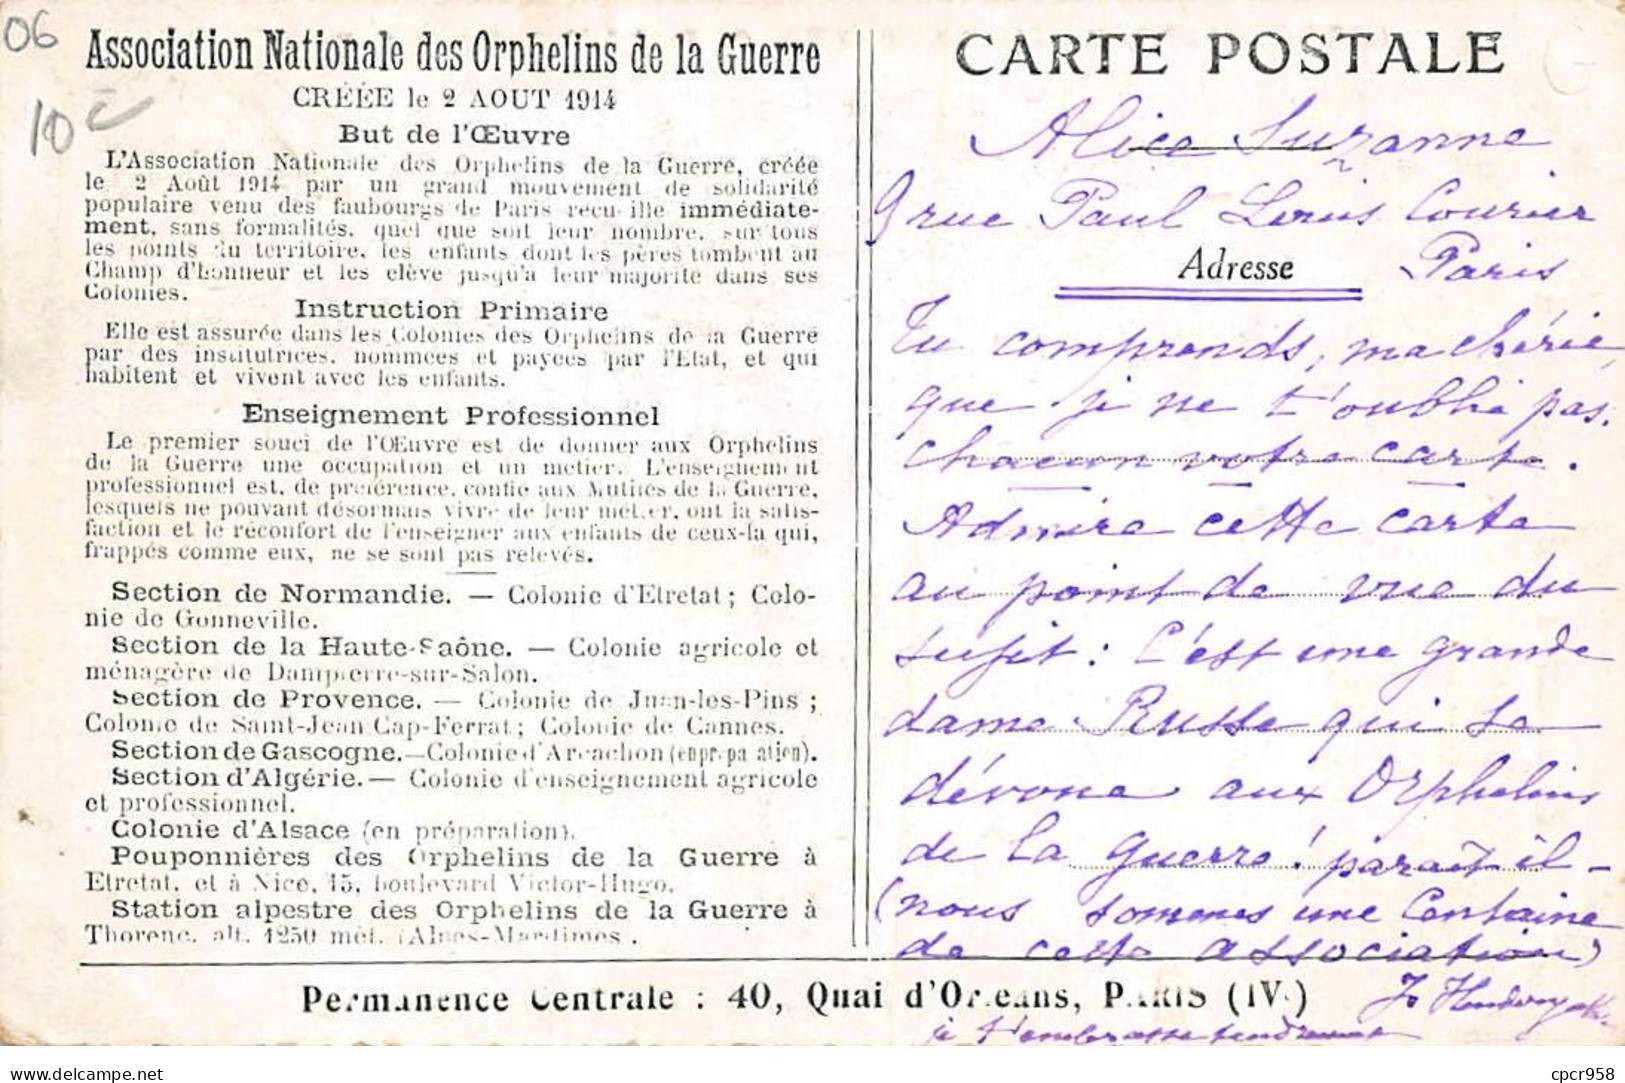 06
10c
Association Nationale des Orphelins de la Guerre
CRÉÉE le 2 AOUT 1914
But de l'Œuvre
L'Association Nationale des Orphelins de la Guerre, créée
le 2 Août 1914 par un grand mouvement de solidarité
populaire venu des faubourgs de Paris recueille immédiate-
ment, sans formalités, quel que soit leur nombre, sur tous
les points du territoire, les enfants dont les pères tombent au
Champ d'honneur et les élève jusqu'à leur majorité dans ses
Colonies.
Instruction Primaire
Elle est assurée dans les Colonies des Orphelins de la Guerre
par des institutrices, nommées et payées par l'Etat, et qui
habitent et vivent avec les enfants.
Enseignement Professionnel
Le premier souci de l'Œuvre est de donner aux Orphelins
de la Guerre une occupation et un métier. L'enseignement
professionnel est, de préférence, confié aux Mutilés de la Guerre,
lesquels ne pouvant désormais vivre de leur métier, ont la satis-
faction et le réconfort de l'enseigner aux enfants de ceux-là qui,
frappés comme eux, ne se sont pas relevés.
Section de Normandie. — Colonie d'Etretat ; Colo-
nie de Gonneville.
Section de la Haute-Saône. — Colonie agricole et
ménagère de Dampierre-sur-Salon.
Section de Provence. — Colonie de Juan-les-Pins ;
Colonie de Saint-Jean Cap-Ferrat ; Colonie de Cannes.
Section de Gascogne. — Colonie d'Arcachon (en préparation).
Section d'Algérie. — Colonie d'enseignement agricole
et professionnel.
Colonie d'Alsace (en préparation).
Pouponnières des Orphelins de la Guerre à
Etretat, et à Nice, 15, boulevard Victor-Hugo.
Station alpestre des Orphelins de la Guerre à
Thorenc, alt. 1250 mèt. (Alpes-Maritimes).
Permanence Centrale : 40, Quai d'Orléans, PARIS (IVe)
CARTE POSTALE
Alice Suzanne
9 rue Paul Louis Courier
Adresse Paris
Tu comprends, ma chérie,
que je ne t'oublie pas.
chacun votre carte.
Admire cette carte
au point de vue du
sujet : C'est une grande
dame Russe qui se
dévoue aux Orphelins
de la guerre ! paraît-il -
(nous sommes une Centaine
de cette association)
je t'embrasse tendrement
cpcr958